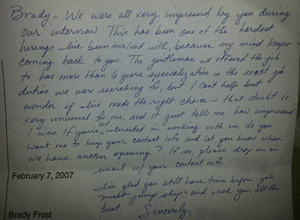 Brady - We were all very impressed by you during
our interview. This has been one of the hardest
hirings I've been involved with, because my mind keeps
coming back to you. The gentleman we offered the job
to has more than 6 years specialization in the exact job
duties we were searching for, but I can't help but
wonder if I've made the right choice - that doubt is
very unusual for me, and it just tells me how impressed
I was. If you're still interested in working with us do you
want me to keep your contact info and let you know when
we have another opening? If so, please drop me an
email w/ your contact info.
February 7, 2007
I'm glad you still have time before you
must jump ship and wish you all the
best.
Sincerely,
Brady Frost